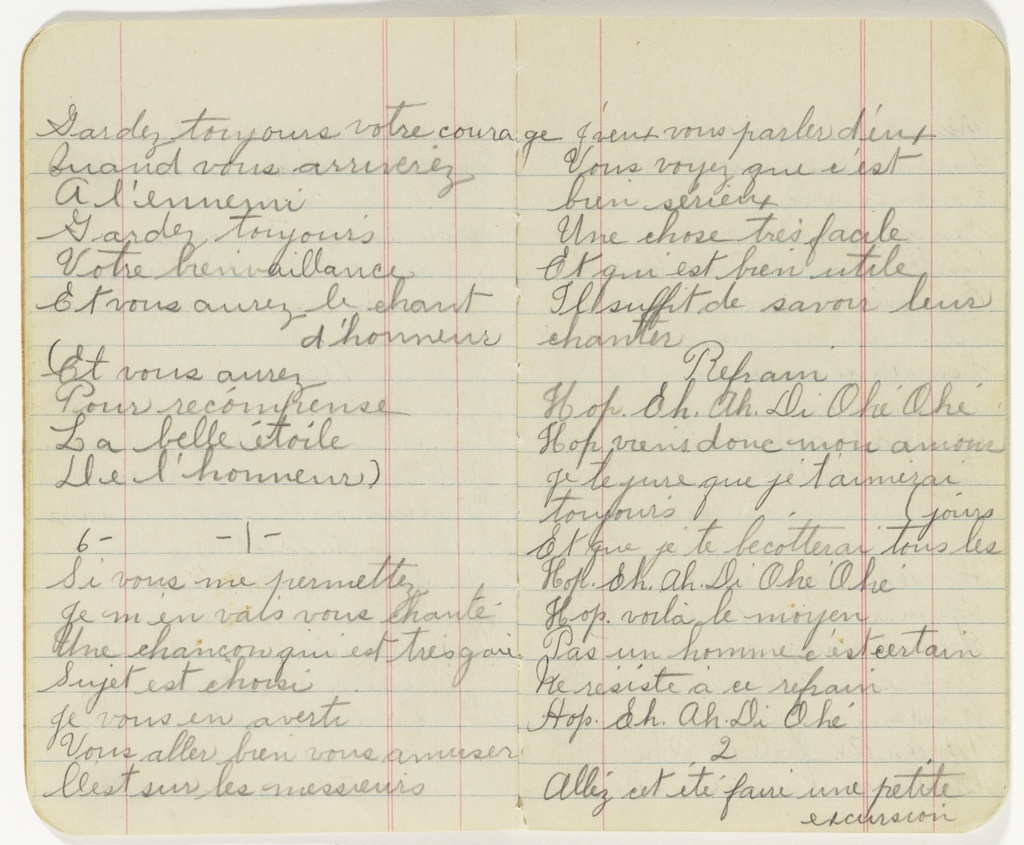 Gardez toujours votre courage
Quand vous arriverez
A l'ennemi
Gardez toujours
Votre bienvaillance
Et vous aurez le chant
d'honneur
(Et vous aurez
Pour recompense
La belle étoile
De l'honneur)
6- -1-
Si vous me permettez
Je m'en vais vous chanté
Une chancon qui est tres gaie
Sujet est choisi
Je vous en averti
Vous aller bien vous amuser
C'est sur les messieurs
j'veux vous parler d'eux
Vous voyez que c'est
bien sérieux
Une chose très facile
Et qui est bien utile
Il suffit de savoir leur
chanter
Refrain
Hop. Eh. Ah. Di Ohé Ohé
Hop viens donc mon amour
Je te jure que je t'aimerai
toujours (jours
Et que je te becotterai tous les
Hop. Eh. Ah. Di Ohé Ohé
Hop. voilà le moyen
Pas un homme c'est certain
Ne résiste à ce refrain
Hop. Eh. Ah. Di Ohé
2
Allez cet été faire une petite
excursion